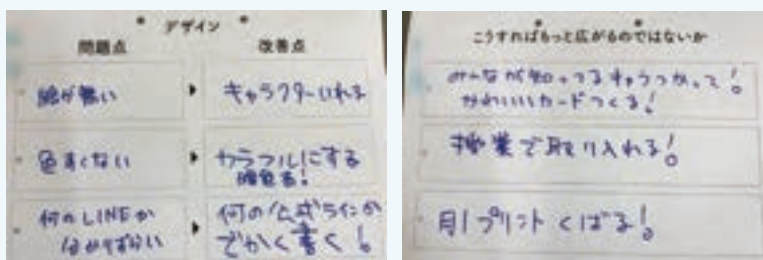 デザイン
問題点
改善点
絵が無い
キャラクターいれる
色すくない
カラフルにする
何のLINEか
分かりずらい
何の公式ラインか
でかく書く!
こうすればもっと広がるのではないか
みーなが知ってるキャラつかって!
かわいいカードつくる!
授業で取り入れる!
プリントくばる!